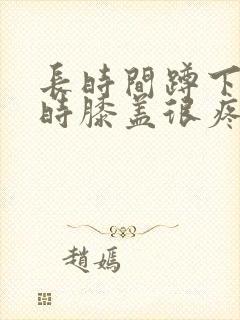 長時間蹲下
時膝盖很疼
趙嫣